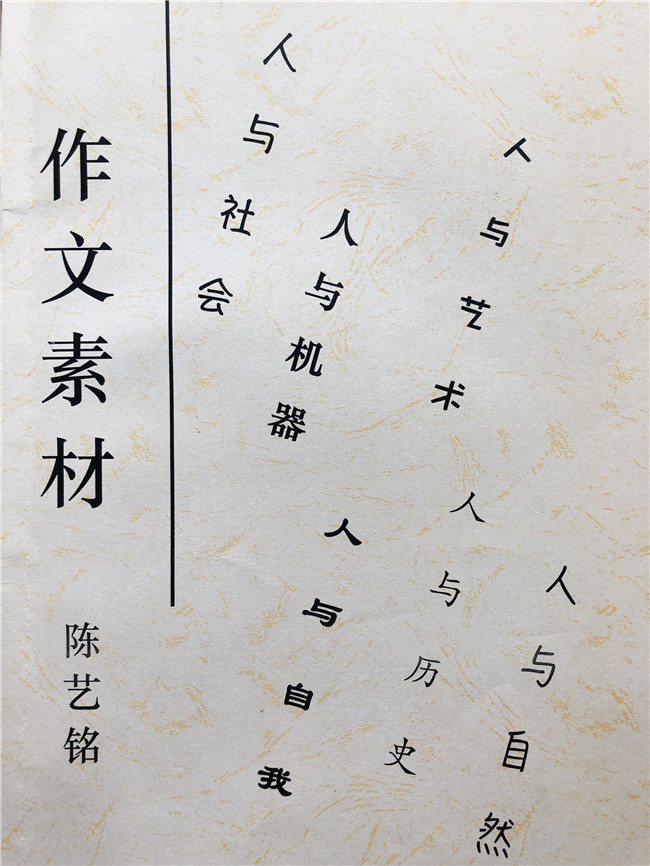 作文素材
陈艺铭
人与社会
人与机器
人与艺术
人与自我
人与历史
人与自然